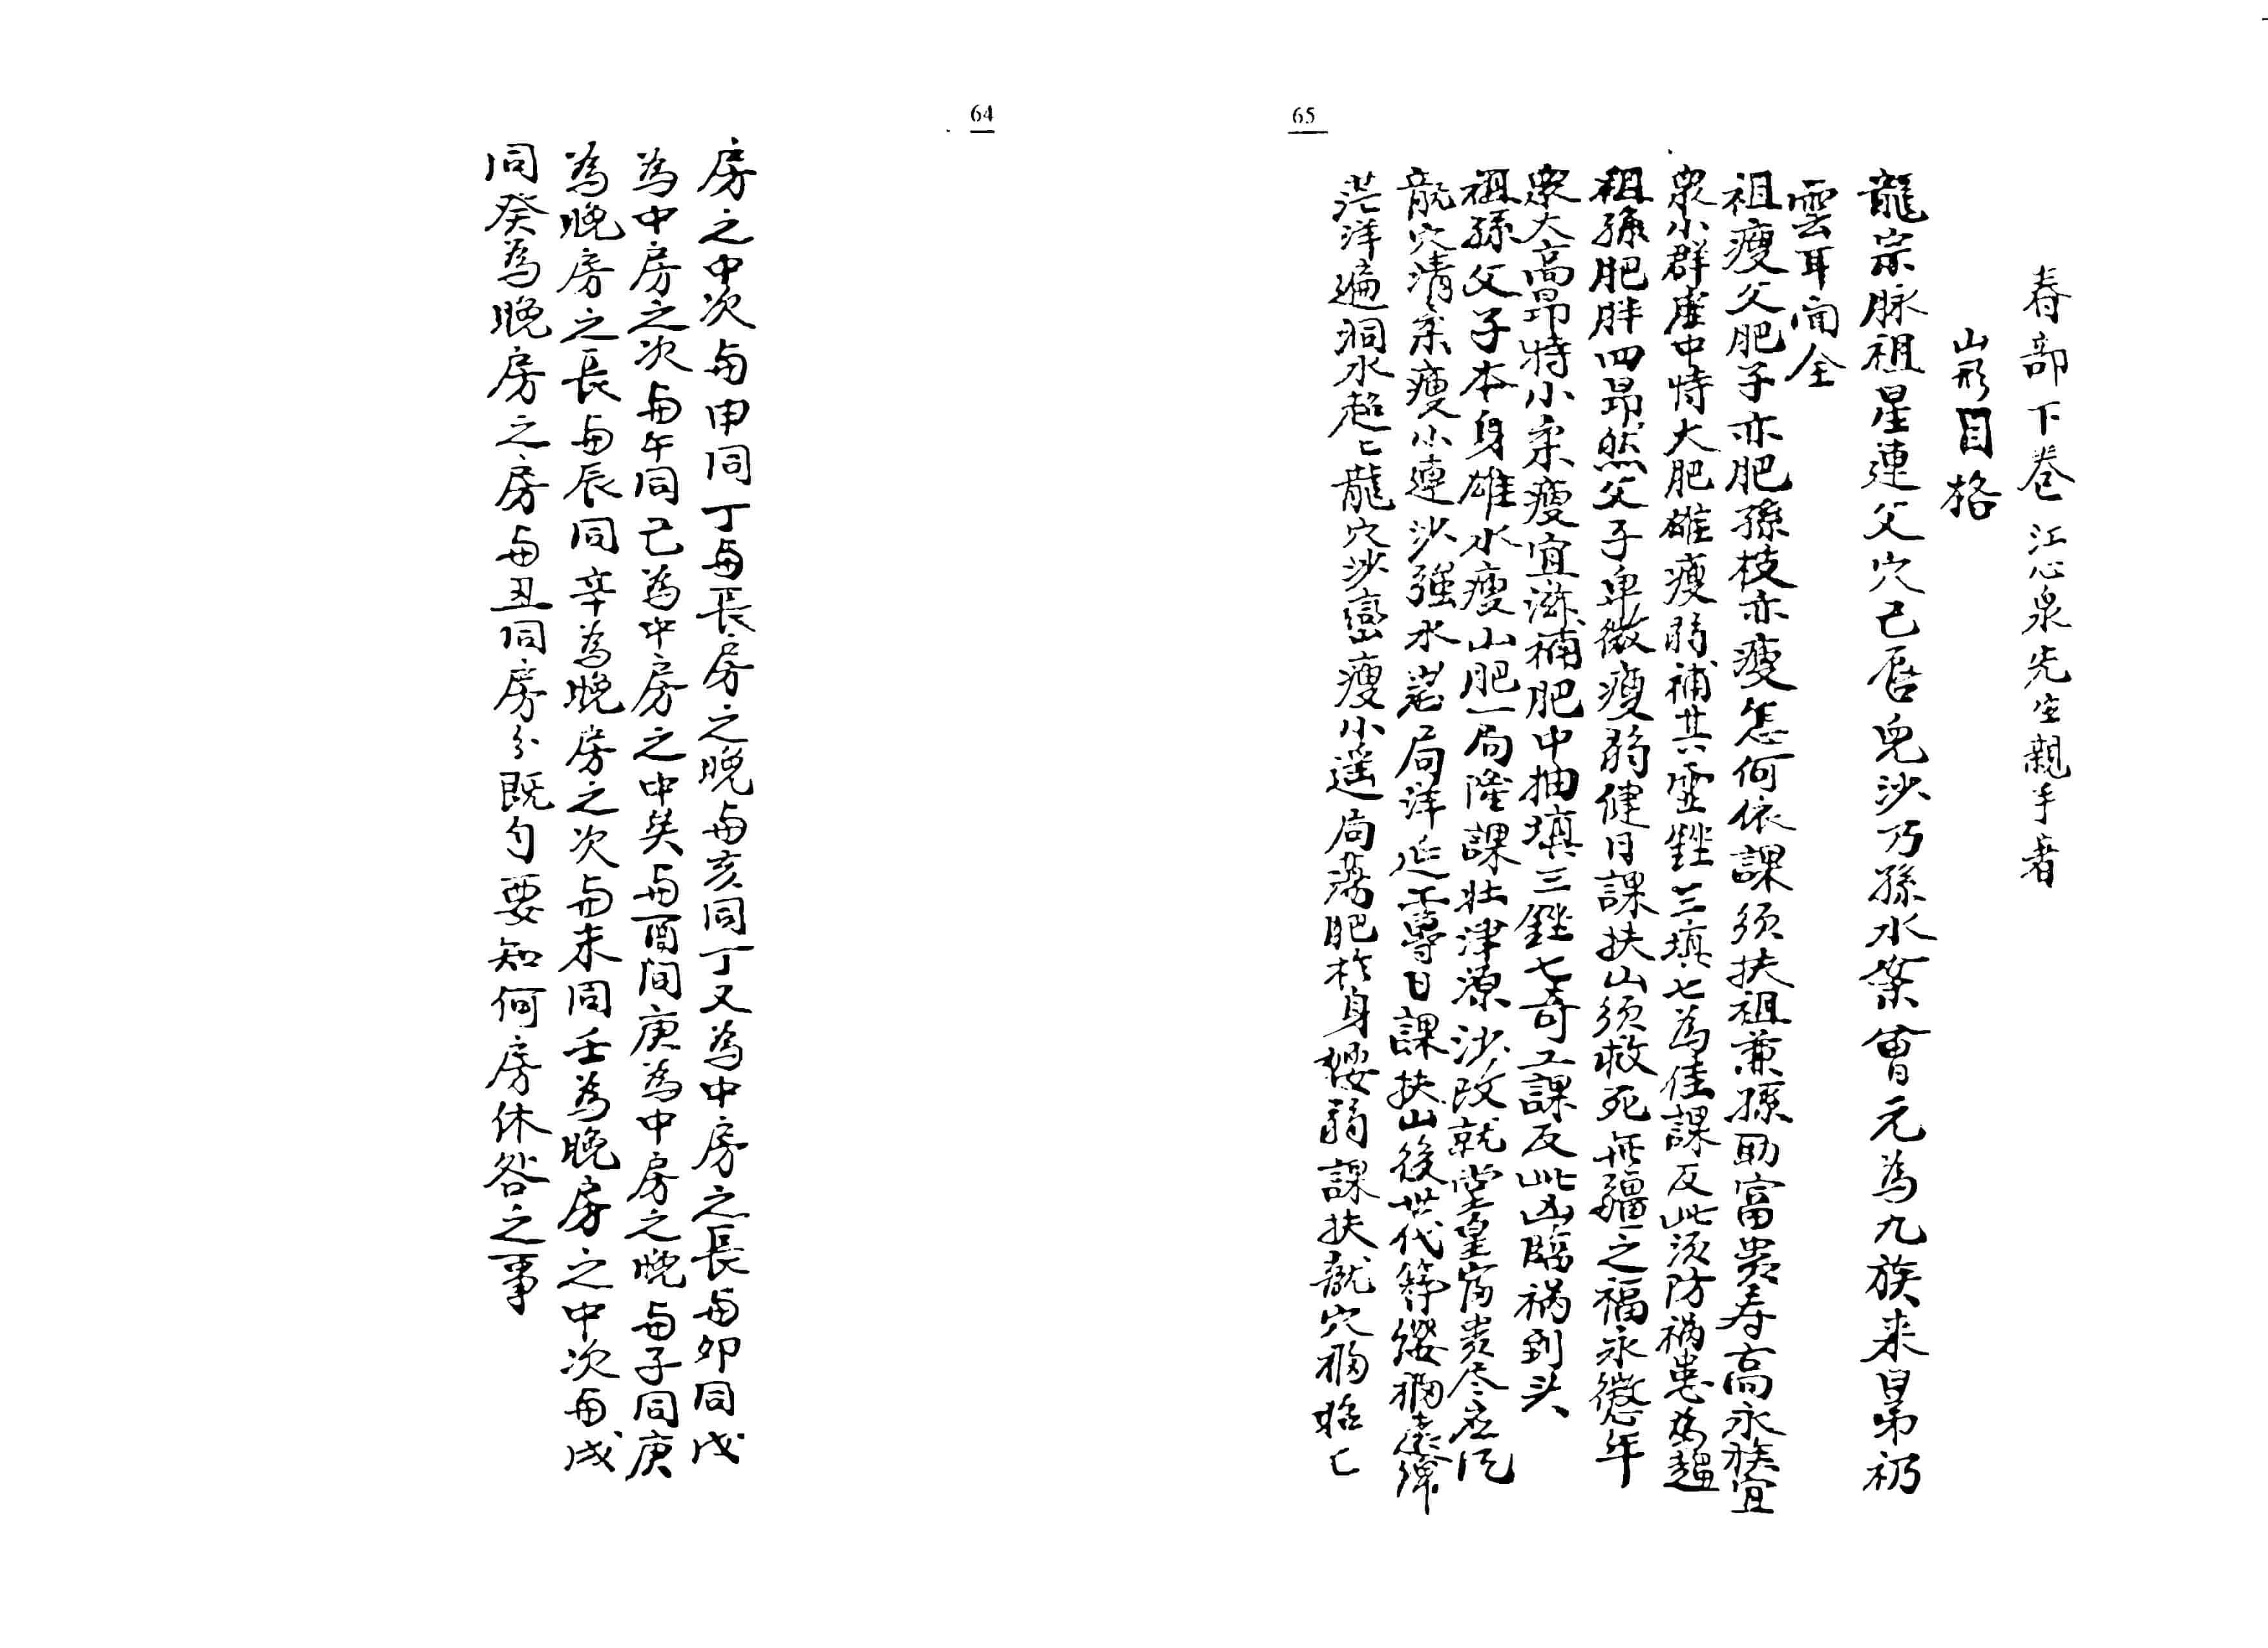 64
房之中次与申同丁与長房之晚与亥同丁又為中房之長与卯同戊
為中房之次与午同己為中房之中矣与酉同庚為中房之晚与子同庚
為晚房之長与辰同辛為晚房之次与未同壬為晚房之中次与戌
同癸為晚房之房与丑同房分既勻要知何房休咎之事
65
春部下卷 江心泉先生親手著
山形目格
龍宗脉祖星連父穴己唇兒沙乃孫水案曾元為九族来昆弟礽
雲耳闻全
祖瘦父肥子亦肥孫枝亦瘦怎何依課須扶祖兼孫助富貴寿高永
衆小群崖中特大肥雄瘦弱補其三填七為佳課反此須防禍患
祖孫肥胖四昂然父子卑微瘦弱健日課扶山須救死無疆之福永年
衆大高昂特小柔瘦宜滋補肥中抽填三七奇工課反此凶臨禍到头
祖孫父子本身雄水瘦山肥一局隆課壮津源沙改就堂皇富贵
龍穴清柔瘦小連沙强水局洋延日課扶山後世代
茫洋遍洞水超匕龍穴沙巒瘦小遥局蕩肥於身弱課扶龍穴